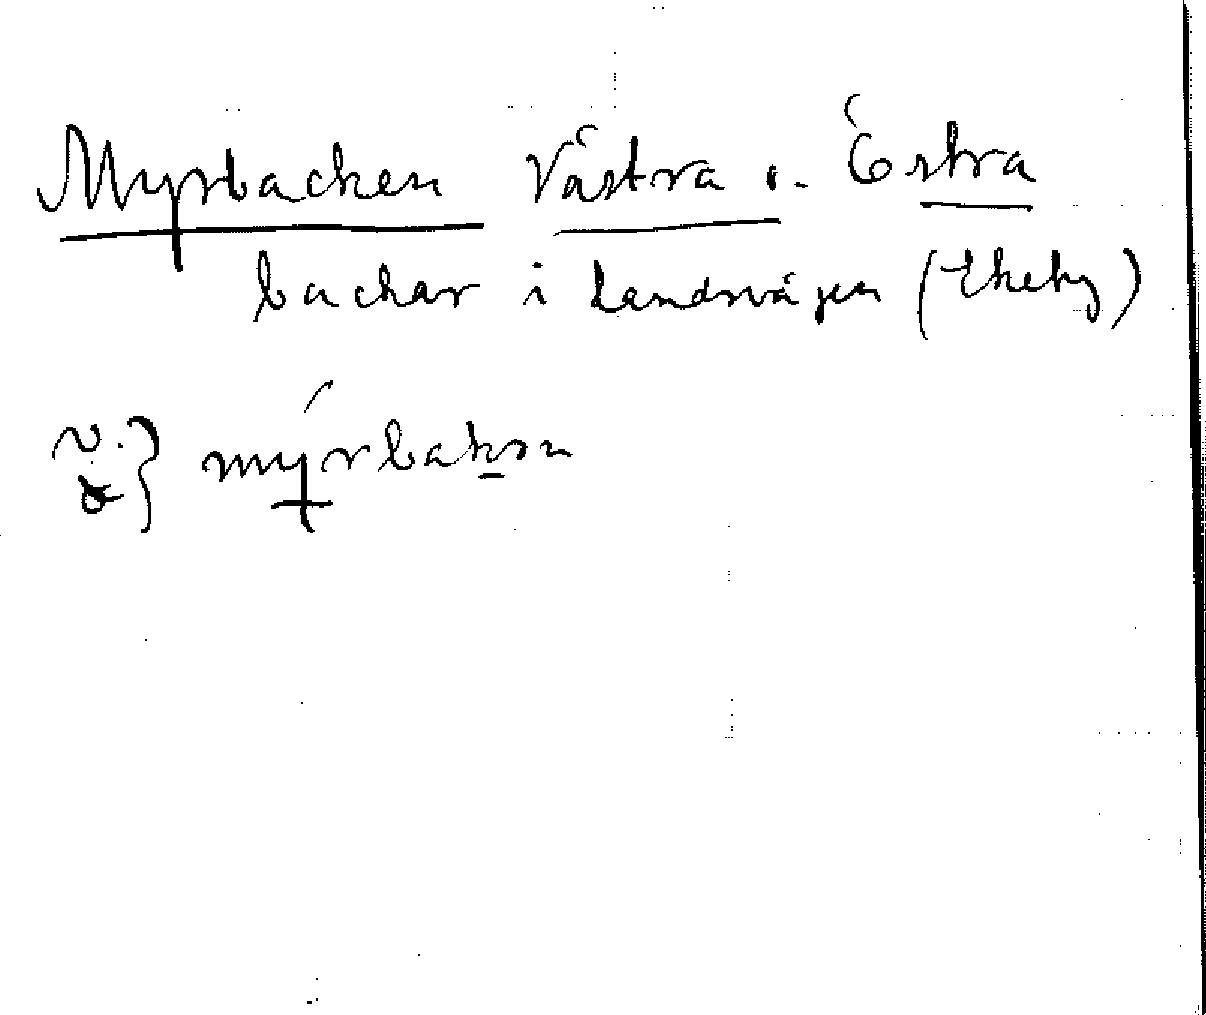 Myrbacken Västra o. Östra
backar i landsvägen (Ekeby)
v. ö } mýrbakən